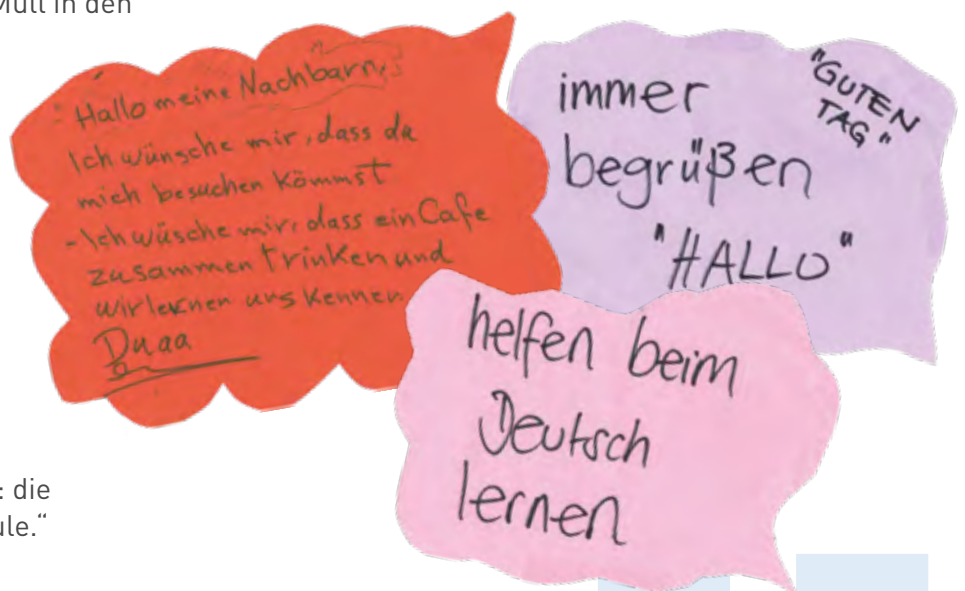 Müll in den
Hallo meine Nachbarn,
Ich wünsche mir, dass du
mich besuchen kömmst
- Ich wüsche mir, dass ein Cafe
zusammen trinken und
wir lernen uns kennen
Duaa
immer
begrüßen
"HALLO"
"GUTEN
TAG"
helfen beim
Deutsch
lernen
: die
ule.“